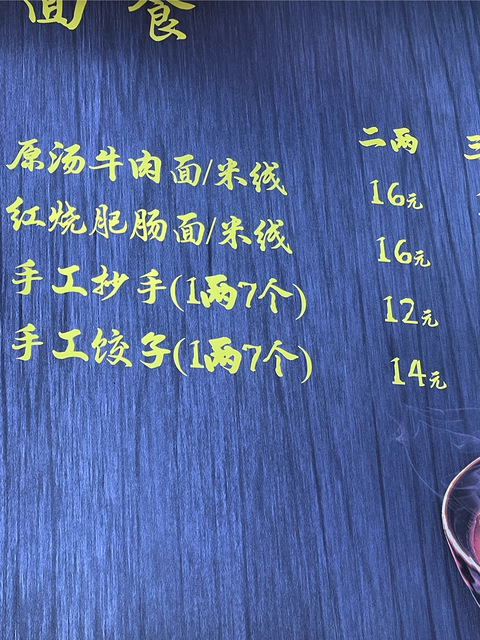 面食
二两 三
原汤牛肉面/米线 16元
红烧肥肠面/米线 16元
手工抄手(1两7个) 12元
手工饺子(1两7个) 14元